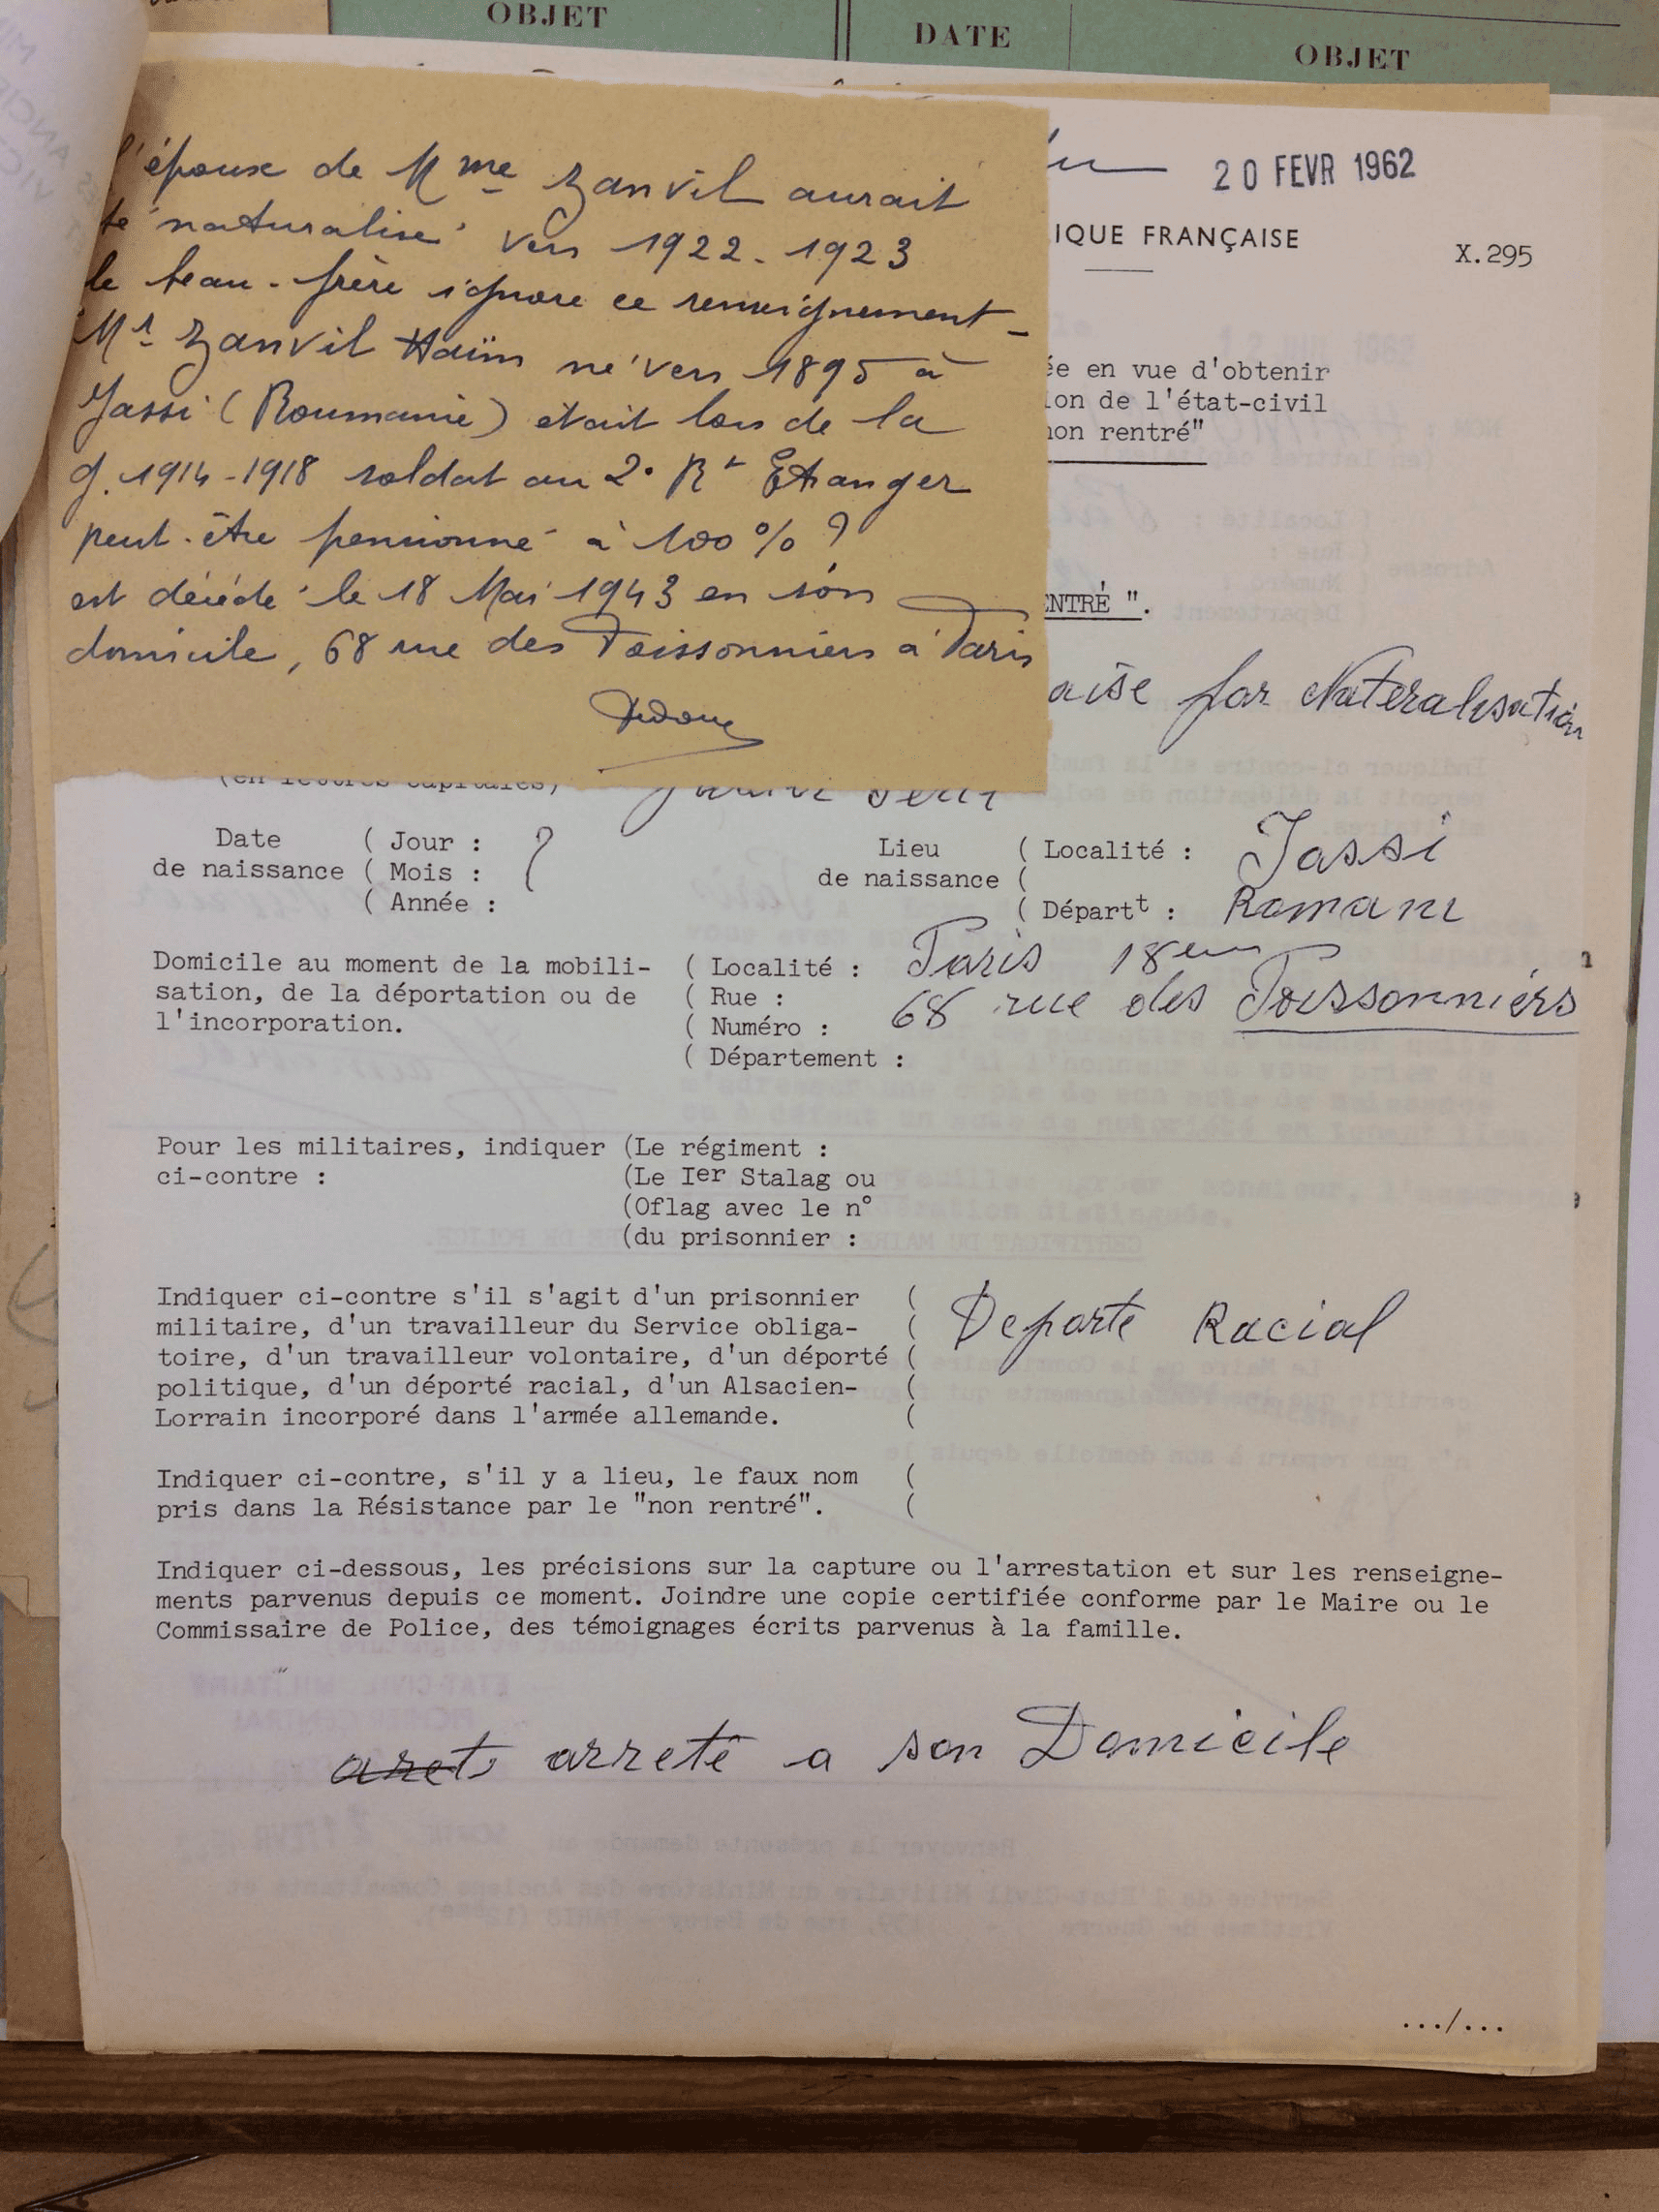 OBJET
DATE
OBJET
l'époux de Mme Zanvil aurait
té naturalisé vers 1922-1923
le beau-frère ignore ce renseignement-
Mr Zanvil Haïm né vers 1895 à
Jassi (Roumanie) était lors de la
g. 1914-1918 soldat au 2e Rt Etranger
peut-être pensionné à 100% ?
est décédé le 18 Mai 1943 en son
domicile, 68 rue des Poissonniers à Paris
20 FEVR 1962
IQUE FRANÇAISE
X.295
ée en vue d'obtenir
ion de l'état-civil
non rentré"
ENTRÉ ".
aise par Nateralisation
(en lettres capitales)
Date ( Jour : ?
de naissance ( Mois :
( Année :
Lieu ( Localité : Jassi
de naissance (
( Départt : Romani
Domicile au moment de la mobili-
sation, de la déportation ou de
l'incorporation.
( Localité : Paris 18em
( Rue :
( Numéro : 68 rue des Poissonniérs
( Département :
Pour les militaires, indiquer (Le régiment :
ci-contre : (Le Ier Stalag ou
(Oflag avec le n°
(du prisonnier :
Indiquer ci-contre s'il s'agit d'un prisonnier (
militaire, d'un travailleur du Service obliga- ( Deporte Racial
toire, d'un travailleur volontaire, d'un déporté (
politique, d'un déporté racial, d'un Alsacien- (
Lorrain incorporé dans l'armée allemande. (
Indiquer ci-contre, s'il y a lieu, le faux nom (
pris dans la Résistance par le "non rentré". (
Indiquer ci-dessous, les précisions sur la capture ou l'arrestation et sur les renseigne-
ments parvenus depuis ce moment. Joindre une copie certifiée conforme par le Maire ou le
Commissaire de Police, des témoignages écrits parvenus à la famille.
arreté a son Domicile
.../...